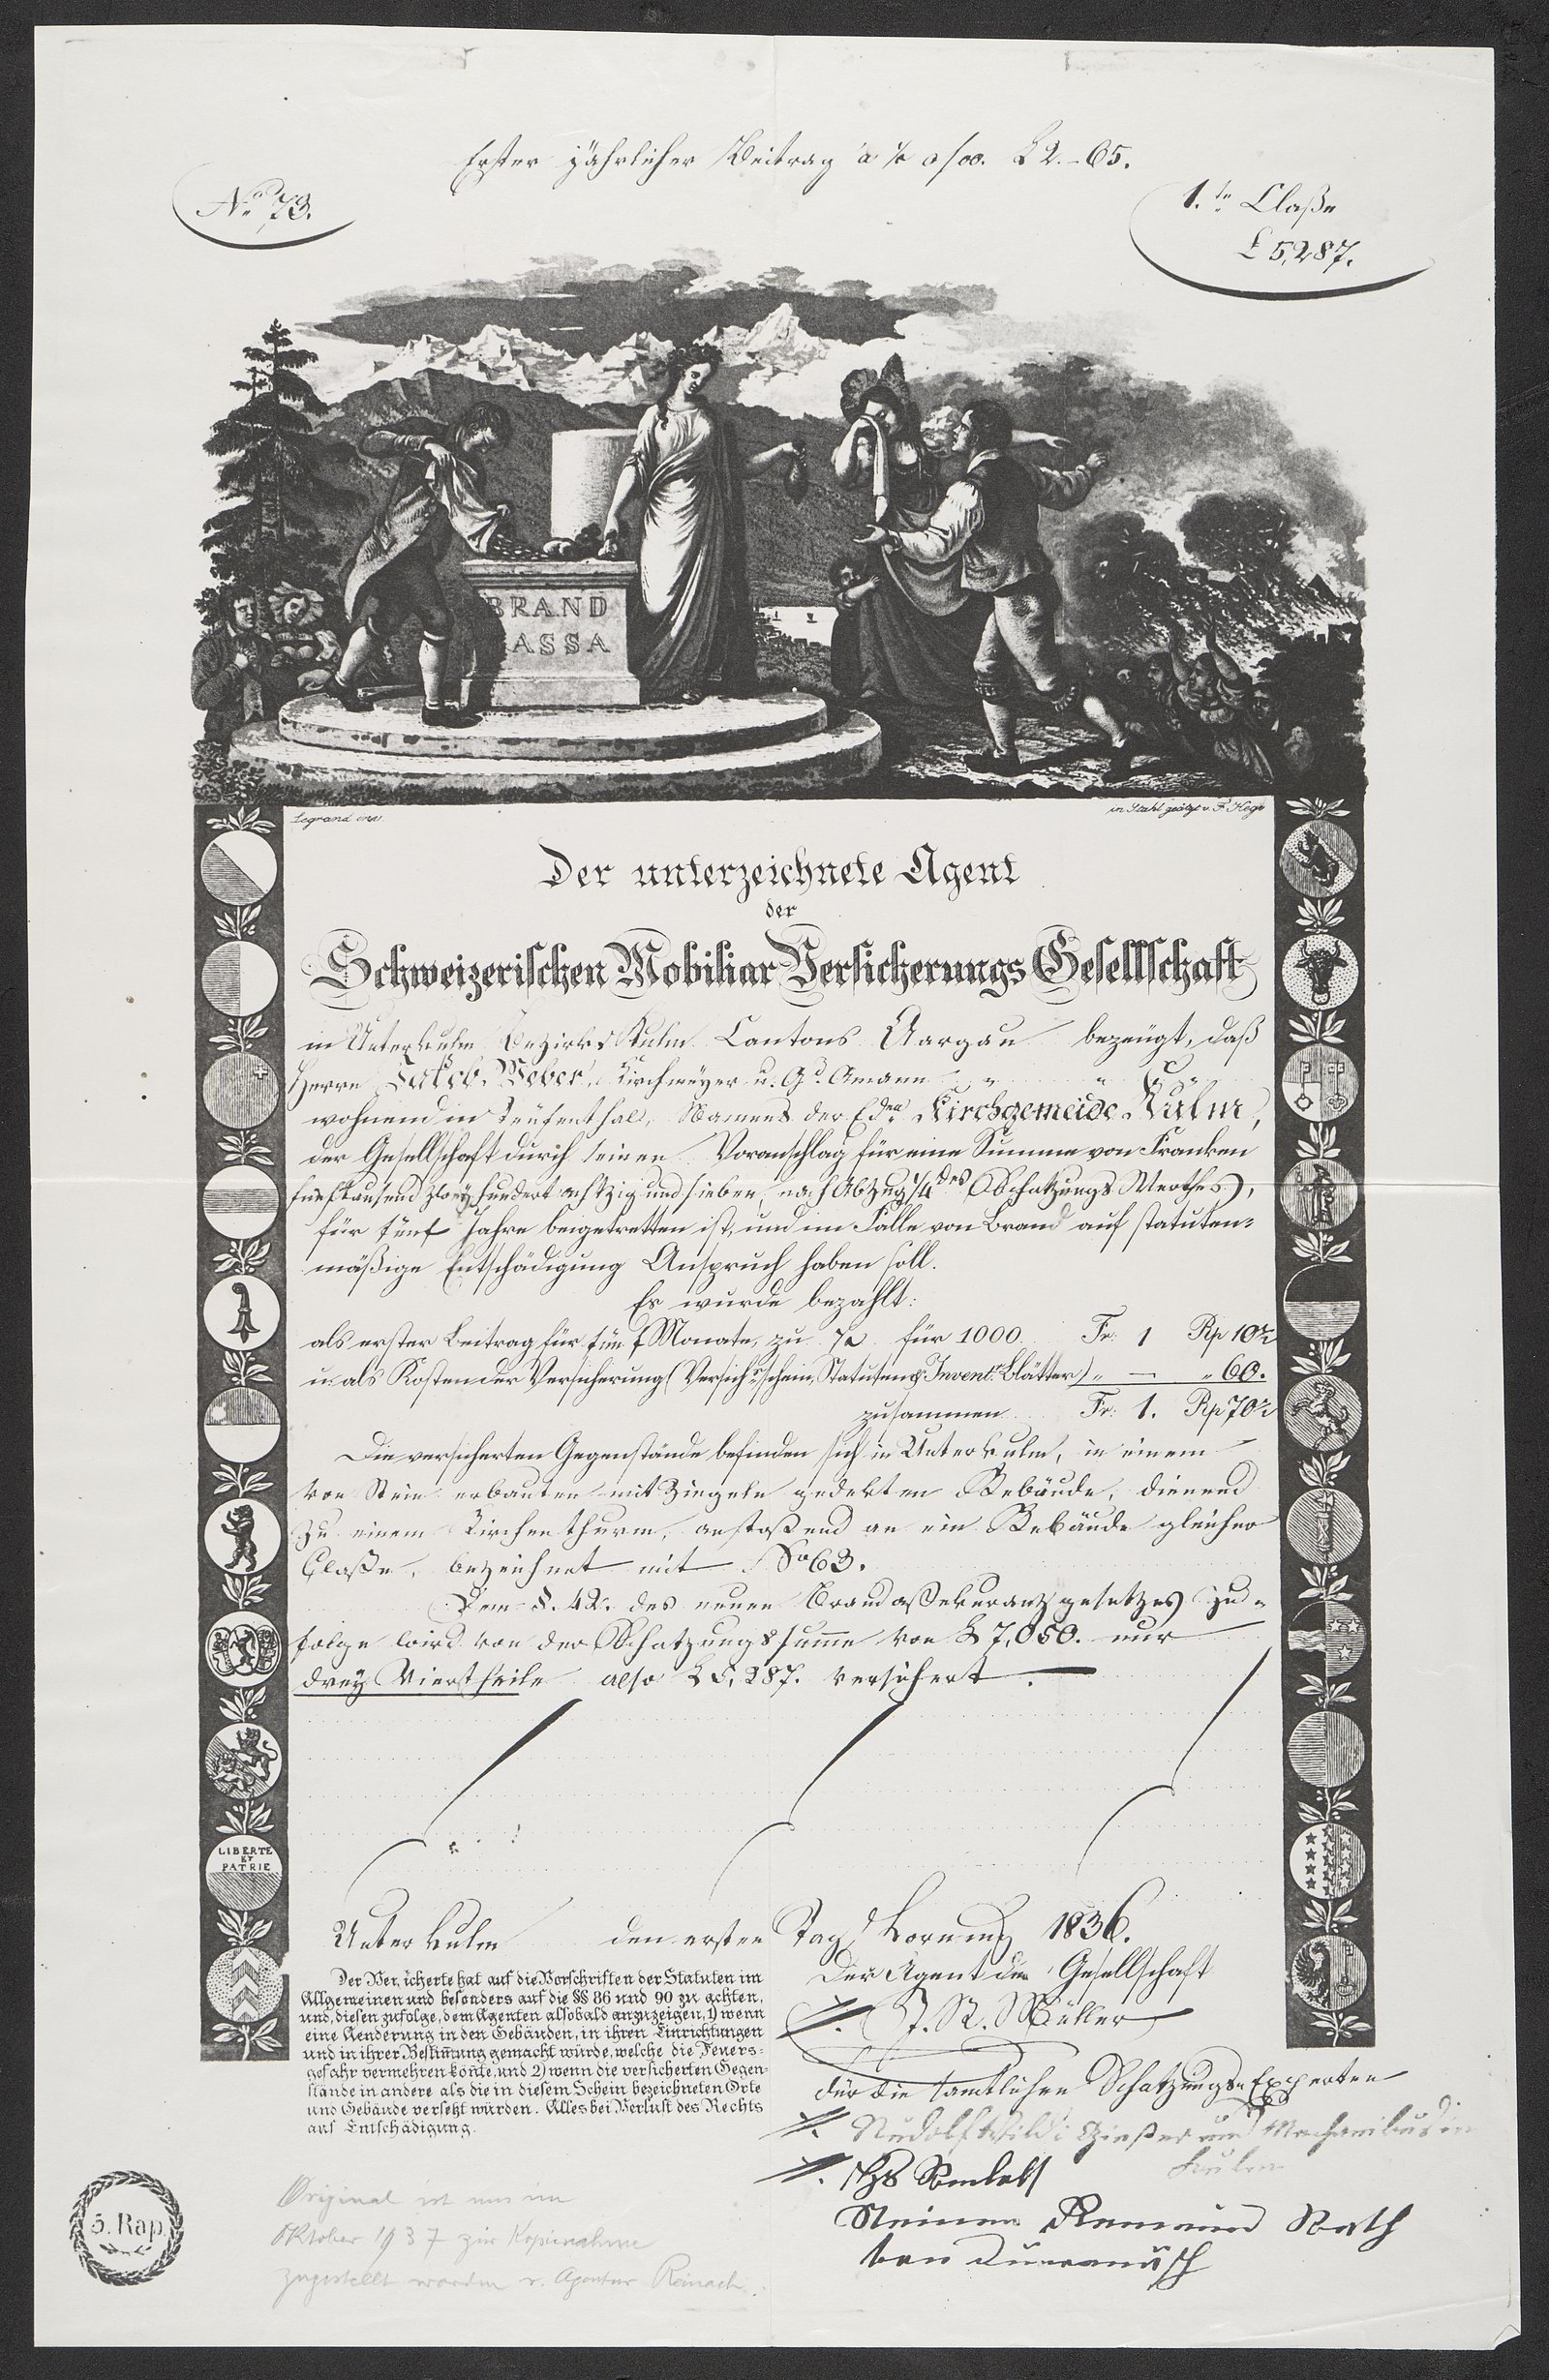 Erster jährlicher Beitrag à ½ o/oo. L 2.-65.
No. 73.
1.te Claße
L 5,287.
BRAND
ASSA
Legrand inv.
in Stahl geätzt v. F. Hegi
Der unterzeichnete Agent
der
Schweizerischen Mobiliar Versicherungs Gesellschaft
in Unterkulm Bezirks Kulm Cantons Aargau bezeugt, daß
Herrn Jakob Weber, Kirchmeyer u. Gd. Amann
wohnend in Teufenthal, Namens der Eden Kirchgemeide Kulm,
der Gesellschaft durch seinen Voranschlag für eine Summe von Franken
fünftausend zwey hundert achtzig und sieben, nach Abzug 1/4 des Schatzungs Werthes,
für fünf Jahre beigetretten ist, und im Falle von Brand auf statuten-
mäßige Entschädigung Anspruch haben soll.
Es wurde bezahlt:
als erster Beitrag für fünf Monate, zu ½ für 1000 Fr. 1 Rp 10½
u. als Kosten der Versicherung (Versichgsschein, Statuten & Invent. Blätter) " — " 60.
zusammen Fr. 1. Rp 70½
Die versicherten Gegenstände befinden sich in Unterkulm, in einem
von Stein erbauten mit Ziegeln gedekten Gebäude, dienend
zu einem Kirchenthurm, anstoßend an ein Gebäude gleicher
Claße, bezeichnet mit No 63.
Dem §. 42. des neuen Brandaßekuranzgesetzes zu-
folge wird von der Schatzungssumme von L 7,050. nur
drey Viertheile also L 5,287. versichert.
LIBERTE
ET
PATRIE
Unterkulm den ersten Tag Hornung 1836.
Der Agent der Gesellschaft
J. R. Müller
Der Versicherte hat auf die Vorschriften der Statuten im
Allgemeinen und besonders auf die §§ 86 und 90 zu achten,
und, diesen zufolge, dem Agenten alsobald anzuzeigen, 1) wenn
eine Aenderung in den Gebäuden, in ihren Einrichtungen
und in ihrer Bestimmung gemacht würde, welche die Feuers-
gefahr vermehren könte, und 2) wenn die versicherten Gegen-
stände in andere als die in diesem Schein bezeichneten Orte
und Gebäude versetzt würden. Alles bei Verlust des Rechts
auf Entschädigung.
für die samtlichen Schatzungs-Experten
Rudolf Wildi Gießer und Mechanikus in
Kulm
Steiner Gemeind Rath
von Dürrenäsch
5. Rap.
Original ist uns im
Oktober 1937 zur Kopienahme
zugestellt worden v. Agentur Reinach.